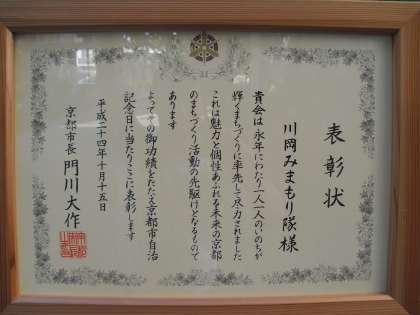 表彰状
川岡みまもり隊様
貴会は永年にわたり一人一人のいのちが
輝くまちづくりに率先して尽力されました
これは魅力と個性あふれる未来の京都
のまちづくり活動の先駆けとなるもので
あります
よってその御功績をたたえ京都市自治
記念日に当たりここに表彰します
平成二十四年十月十五日
京都市長 門川大作